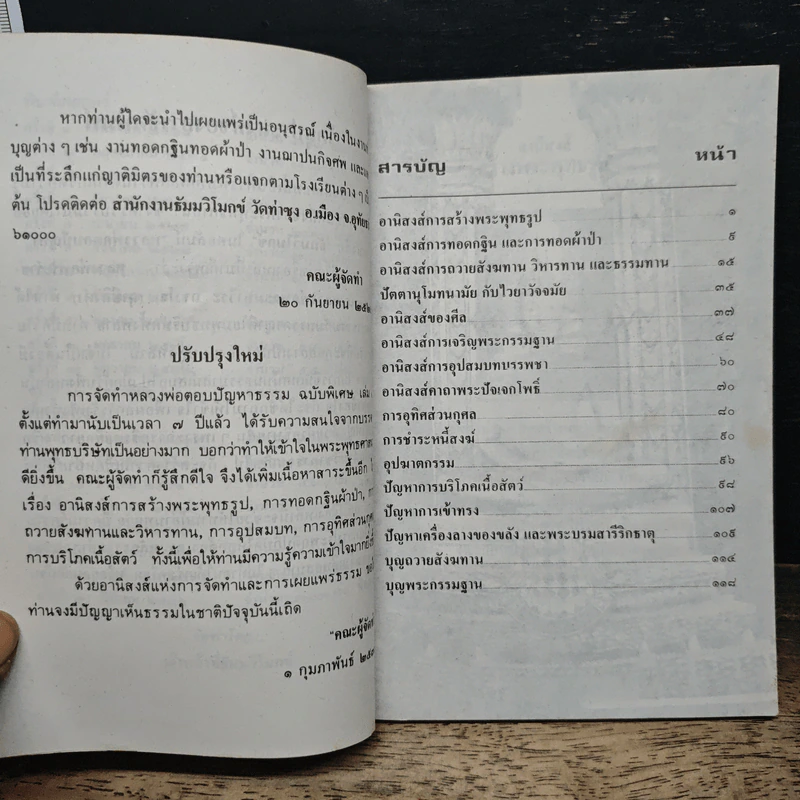 หากท่านผู้ใดจะนำไปเผยแพร่เป็นอนุสรณ์ เนื่องในงาน
บุญต่าง ๆ เช่น งานทอดกฐินทอดผ้าป่า งานฌาปนกิจศพ และ
เป็นที่ระลึกแก่ญาติมิตรของท่านหรือแจกตามโรงเรียนต่าง ๆ
ต้น โปรดติดต่อ สำนักงานธัมมวิโมกข์ วัดท่าซุง อ.เมือง จ.อุทัย
๖๑๐๐๐
คณะผู้จัดทำ
๒๐ กันยายน ๒๕๒
ปรับปรุงใหม่
การจัดทำหลวงพ่อตอบปัญหาธรรม ฉบับพิเศษ เล่ม
ตั้งแต่ทำมานับเป็นเวลา ๗ ปีแล้ว ได้รับความสนใจจากบรร
ท่านพุทธบริษัทเป็นอย่างมาก บอกว่าทำให้เข้าใจในพระพุทธศาส
ดียิ่งขึ้น คณะผู้จัดทำก็รู้สึกดีใจ จึงได้เพิ่มเนื้อหาสาระขึ้นอีก
เรื่อง อานิสงส์การสร้างพระพุทธรูป, การทอดกฐินผ้าป่า,
ถวายสังฆทานและวิหารทาน, การอุปสมบท, การอุทิศส่วนกุศ
การบริโภคเนื้อสัตว์ ทั้งนี้เพื่อให้ท่านมีความรู้ความเข้าใจมากยิ่ง
ด้วยอานิสงส์แห่งการจัดทำและการเผยแพร่ธรรม
ท่านจงมีปัญญาเห็นธรรมในชาติปัจจุบันนี้เถิด
"คณะผู้จัด
๑ กุมภาพันธ์ ๒๕
สารบัญ หน้า
อานิสงส์การสร้างพระพุทธรูป ๑
อานิสงส์การทอดกฐิน และการทอดผ้าป่า ๙
อานิสงส์การถวายสังฆทาน วิหารทาน และธรรมทาน ๑๕
ปัตตานุโมทนามัย กับไวยาวัจจมัย ๓๕
อานิสงส์ของศีล ๓๗
อานิสงส์การเจริญพระกรรมฐาน ๔๘
อานิสงส์การอุปสมบทบรรพชา ๖๐
อานิสงส์คาถาพระปัจเจกโพธิ์ ๗๐
การอุทิศส่วนกุศล ๘๐
การชำระหนี้สงฆ์ ๙๐
อุปฆาตกรรม ๙๖
ปัญหาการบริโภคเนื้อสัตว์ ๙๘
ปัญหาการเข้าทรง ๑๐๗
ปัญหาเครื่องลางของขลัง และพระบรมสารีริกธาตุ ๑๐๙
บุญถวายสังฆทาน ๑๑๔
บุญพระกรรมฐาน ๑๑๘